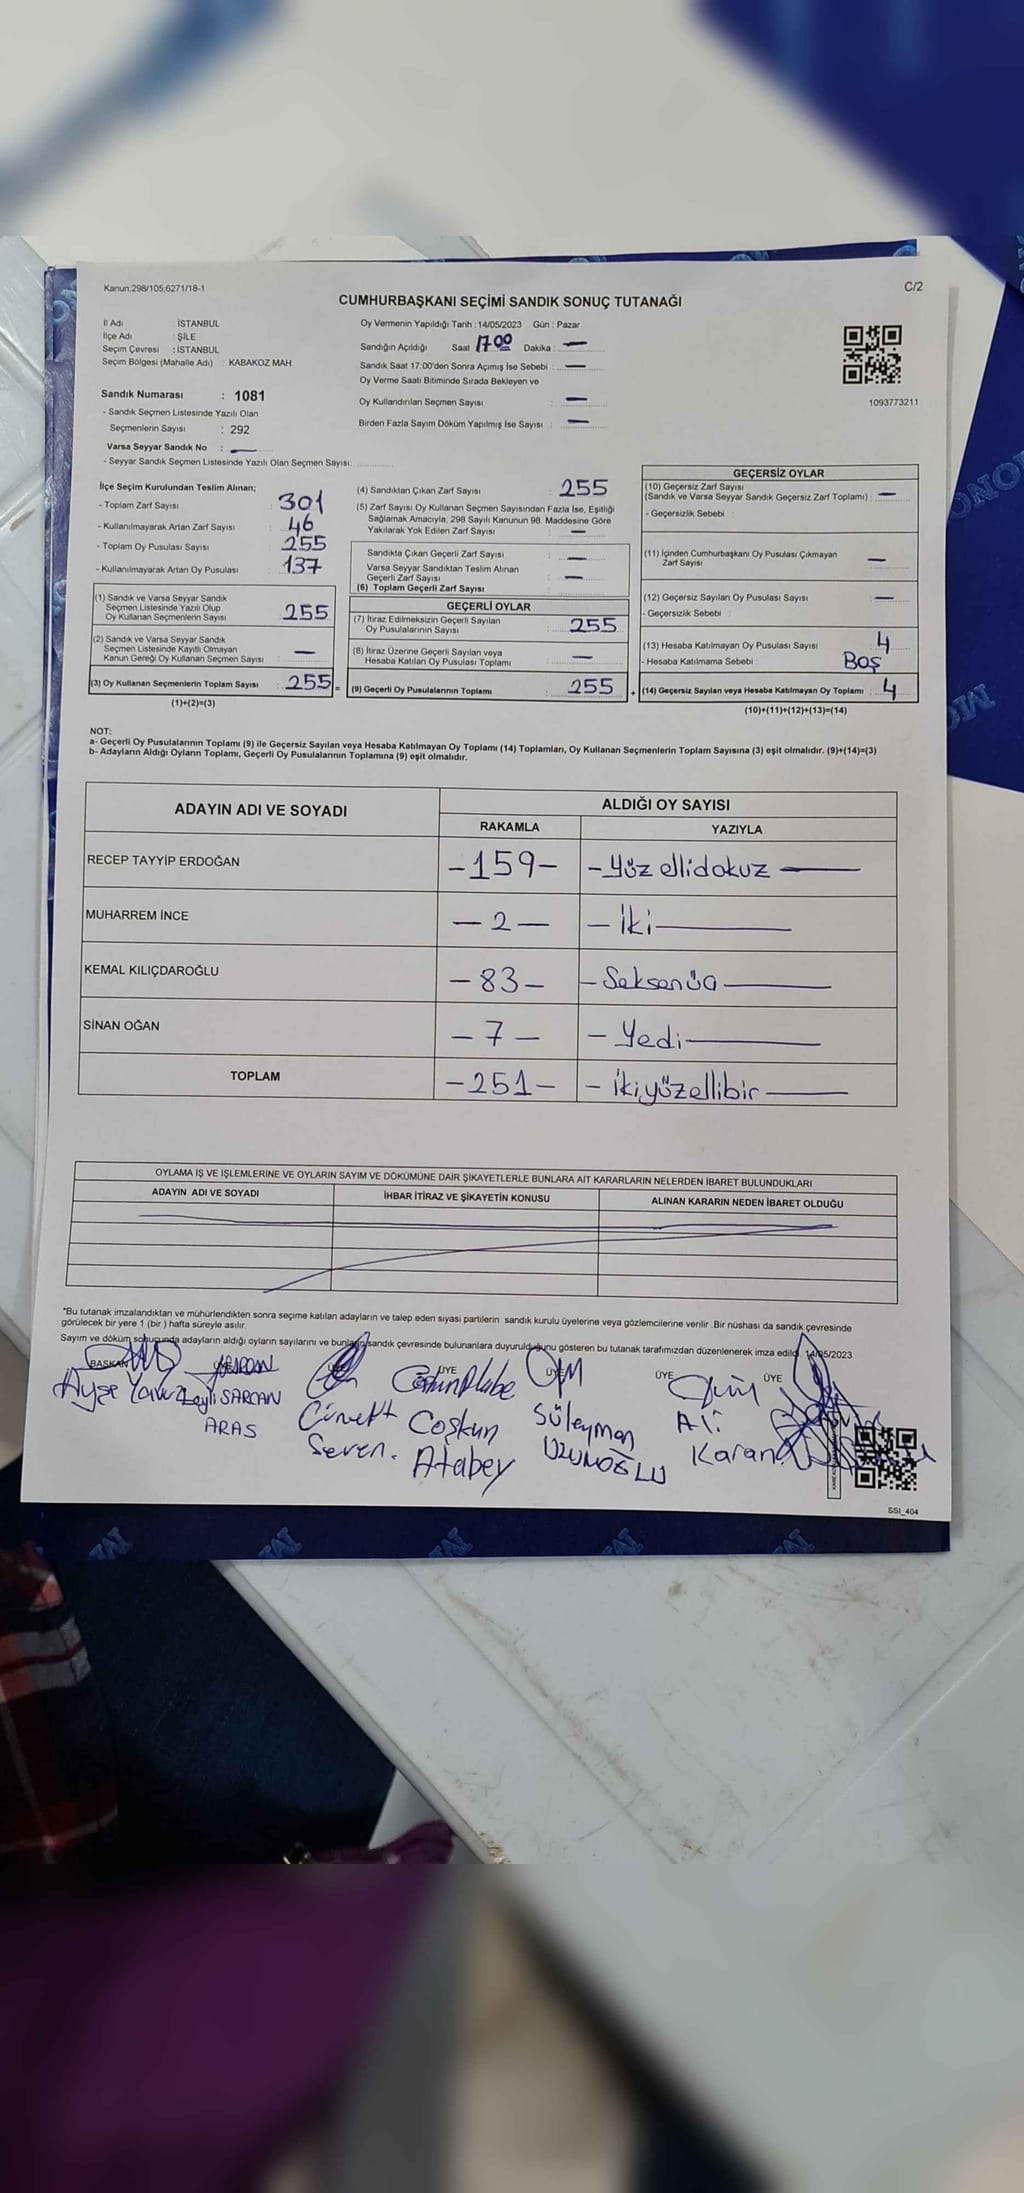 Kanun,298/105,6271/18-1
C/2
CUMHURBAŞKANI SEÇİMİ SANDIK SONUÇ TUTANAĞI
İl Adı : İSTANBUL
İlçe Adı : ŞİLE
Seçim Çevresi : İSTANBUL
Seçim Bölgesi (Mahalle Adı) : KABAKOZ MAH.
Sandık Numarası : 1081
- Sandık Seçmen Listesinde Yazılı Olan
Seçmenlerin Sayısı : 292
Varsa Seyyar Sandık No : —
- Seyyar Sandık Seçmen Listesinde Yazılı Olan Seçmen Sayısı:
Oy Vermenin Yapıldığı Tarih : 14/05/2023 Gün : Pazar
Sandığın Açıldığı Saat 17 00 Dakika : —
Sandık Saat 17.00'den Sonra Açımış İse Sebebi : —
Oy Verme Saati Bitiminde Sırada Bekleyen ve
Oy Kullandırılan Seçmen Sayısı : —
Birden Fazla Sayım Döküm Yapılmış İse Sayısı : —
1093773211
İlçe Seçim Kurulundan Teslim Alınan;
- Toplam Zarf Sayısı : 301
- Kullanılmayarak Artan Zarf Sayısı : 46
- Toplam Oy Pusulası Sayısı : 255
- Kullanılmayarak Artan Oy Pusulası : 137
(1) Sandık ve Varsa Seyyar Sandık
Seçmen Listesinde Yazılı Olup
Oy Kullanan Seçmenlerin Sayısı : 255
(2) Sandık ve Varsa Seyyar Sandık
Seçmen Listesinde Kayıtlı Olmayan
Kanun Gereği Oy Kullanan Seçmen Sayısı : —
(3) Oy Kullanan Seçmenlerin Toplam Sayısı : 255 =
(1)+(2)=(3)
(4) Sandıktan Çıkan Zarf Sayısı : 255
(5) Zarf Sayısı Oy Kullanan Seçmen Sayısından Fazla İse, Eşitliği
Sağlamak Amacıyla, 298 Sayılı Kanunun 98. Maddesine Göre
Yakılarak Yok Edilen Zarf Sayısı : —
Sandıkta Çıkan Geçerli Zarf Sayısı : —
Varsa Seyyar Sandıktan Teslim Alınan
Geçerli Zarf Sayısı : —
(6) Toplam Geçerli Zarf Sayısı :
GEÇERLİ OYLAR
(7) İtiraz Edilmeksizin Geçerli Sayılan
Oy Pusulalarının Sayısı : 255
(8) İtiraz Üzerine Geçerli Sayılan veya
Hesaba Katılan Oy Pusulası Toplamı : —
(9) Geçerli Oy Pusulalarının Toplamı : 255 +
GEÇERSİZ OYLAR
(10) Geçersiz Zarf Sayısı
(Sandık ve Varsa Seyyar Sandık Geçersiz Zarf Toplamı) : —
- Geçersizlik Sebebi :
(11) İçinden Cumhurbaşkanı Oy Pusulası Çıkmayan
Zarf Sayısı : —
(12) Geçersiz Sayılan Oy Pusulası Sayısı : —
- Geçersizlik Sebebi :
(13) Hesaba Katılmayan Oy Pusulası Sayısı : 4
- Hesaba Katılmama Sebebi : Boş
(14) Geçersiz Sayılan veya Hesaba Katılmayan Oy Toplamı : 4
(10)+(11)+(12)+(13)=(14)
NOT:
a- Geçerli Oy Pusulalarının Toplamı (9) ile Geçersiz Sayılan veya Hesaba Katılmayan Oy Toplamı (14) Toplamları, Oy Kullanan Seçmenlerin Toplam Sayısına (3) eşit olmalıdır. (9)+(14)=(3)
b- Adayların Aldığı Oyların Toplamı, Geçerli Oy Pusulalarının Toplamına (9) eşit olmalıdır.
ADAYIN ADI VE SOYADI
ALDIĞI OY SAYISI
RAKAMLA
YAZIYLA
RECEP TAYYİP ERDOĞAN -159- -Yüz ellidokuz —
MUHARREM İNCE - 2 - - İki —
KEMAL KILIÇDAROĞLU - 83 - - Seksenüç —
SİNAN OĞAN - 7 - - Yedi —
TOPLAM -251- - ikiyüzellibir —
OYLAMA İŞ VE İŞLEMLERİNE VE OYLARIN SAYIM VE DÖKÜMÜNE DAİR ŞİKAYETLERLE BUNLARA AİT KARARLARIN NELERDEN İBARET BULUNDUKLARI
ADAYIN ADI VE SOYADI
İHBAR İTİRAZ VE ŞİKAYETİN KONUSU
ALINAN KARARIN NEDEN İBARET OLDUĞU
*Bu tutanak imzalandıktan ve mühürlendikten sonra seçime katılan adayların ve talep eden siyasi partilerin sandık kurulu üyelerine veya gözlemcilerine verilir. Bir nüshası da sandık çevresinde
görülecek bir yere 1 (bir ) hafta süreyle asılır.
Sayım ve döküm sonucunda adayların aldığı oyların sayılarını ve bunların sandık çevresinde bulunanlara duyurulduğunu gösteren bu tutanak tarafımızdan düzenlenerek imza edildi. 14/05/2023
BAŞKAN ÜYE ÜYE ÜYE ÜYE ÜYE
Ayşe Yavuz
Leyli SARCAN
ARAS
Cüneyt
Seven.
Coşkun
Atabey
Süleyman
UZUNOĞLU
Ali
Karan
SSI_404
MONO